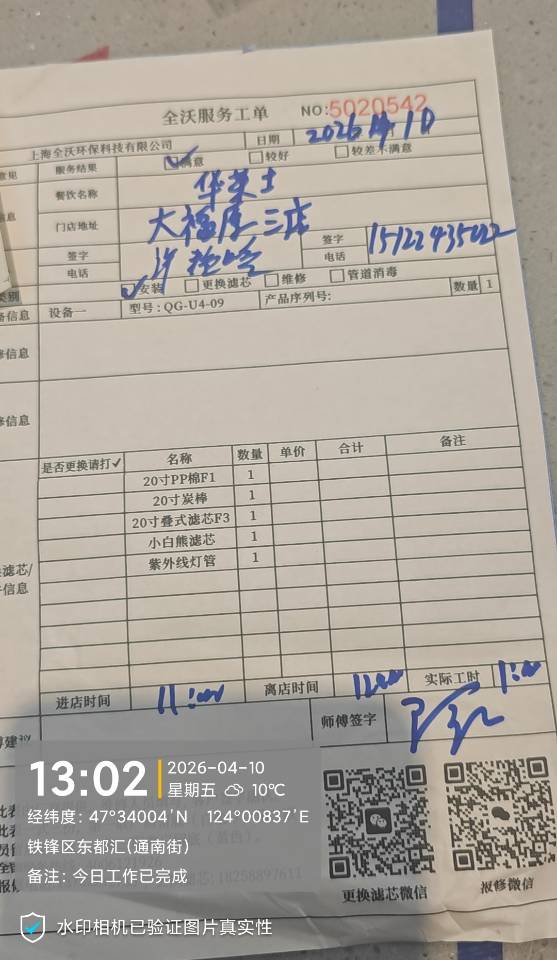 全沃服务工单
NO:5020542
上海全沃环保科技有限公司
日期
服务结果 ✓满意 □较好 □较差不满意
餐饮名称 华莱士
门店地址
签字
电话
签字
电话
✓安装 □更换滤芯 □维修 □管道消毒
备信息 设备一 型号:QG-U4-09 产品序列号: 数量 1
修信息
修信息
是否更换请打✓ 名称 数量 单价 合计 备注
20寸PP棉F1 1
20寸炭棒 1
20寸叠式滤芯F3 1
小白熊滤芯 1
紫外线灯管 1
滤芯/
信息
进店时间 11:00 离店时间 12:00 实际工时 1:00
建议
师傅签字
13:02
2026-04-10
星期五 10℃
经纬度: 47°34004'N 124°00837'E
铁锋区东都汇(通南街)
备注: 今日工作已完成
18258897611
更换滤芯微信
报修微信
水印相机已验证图片真实性